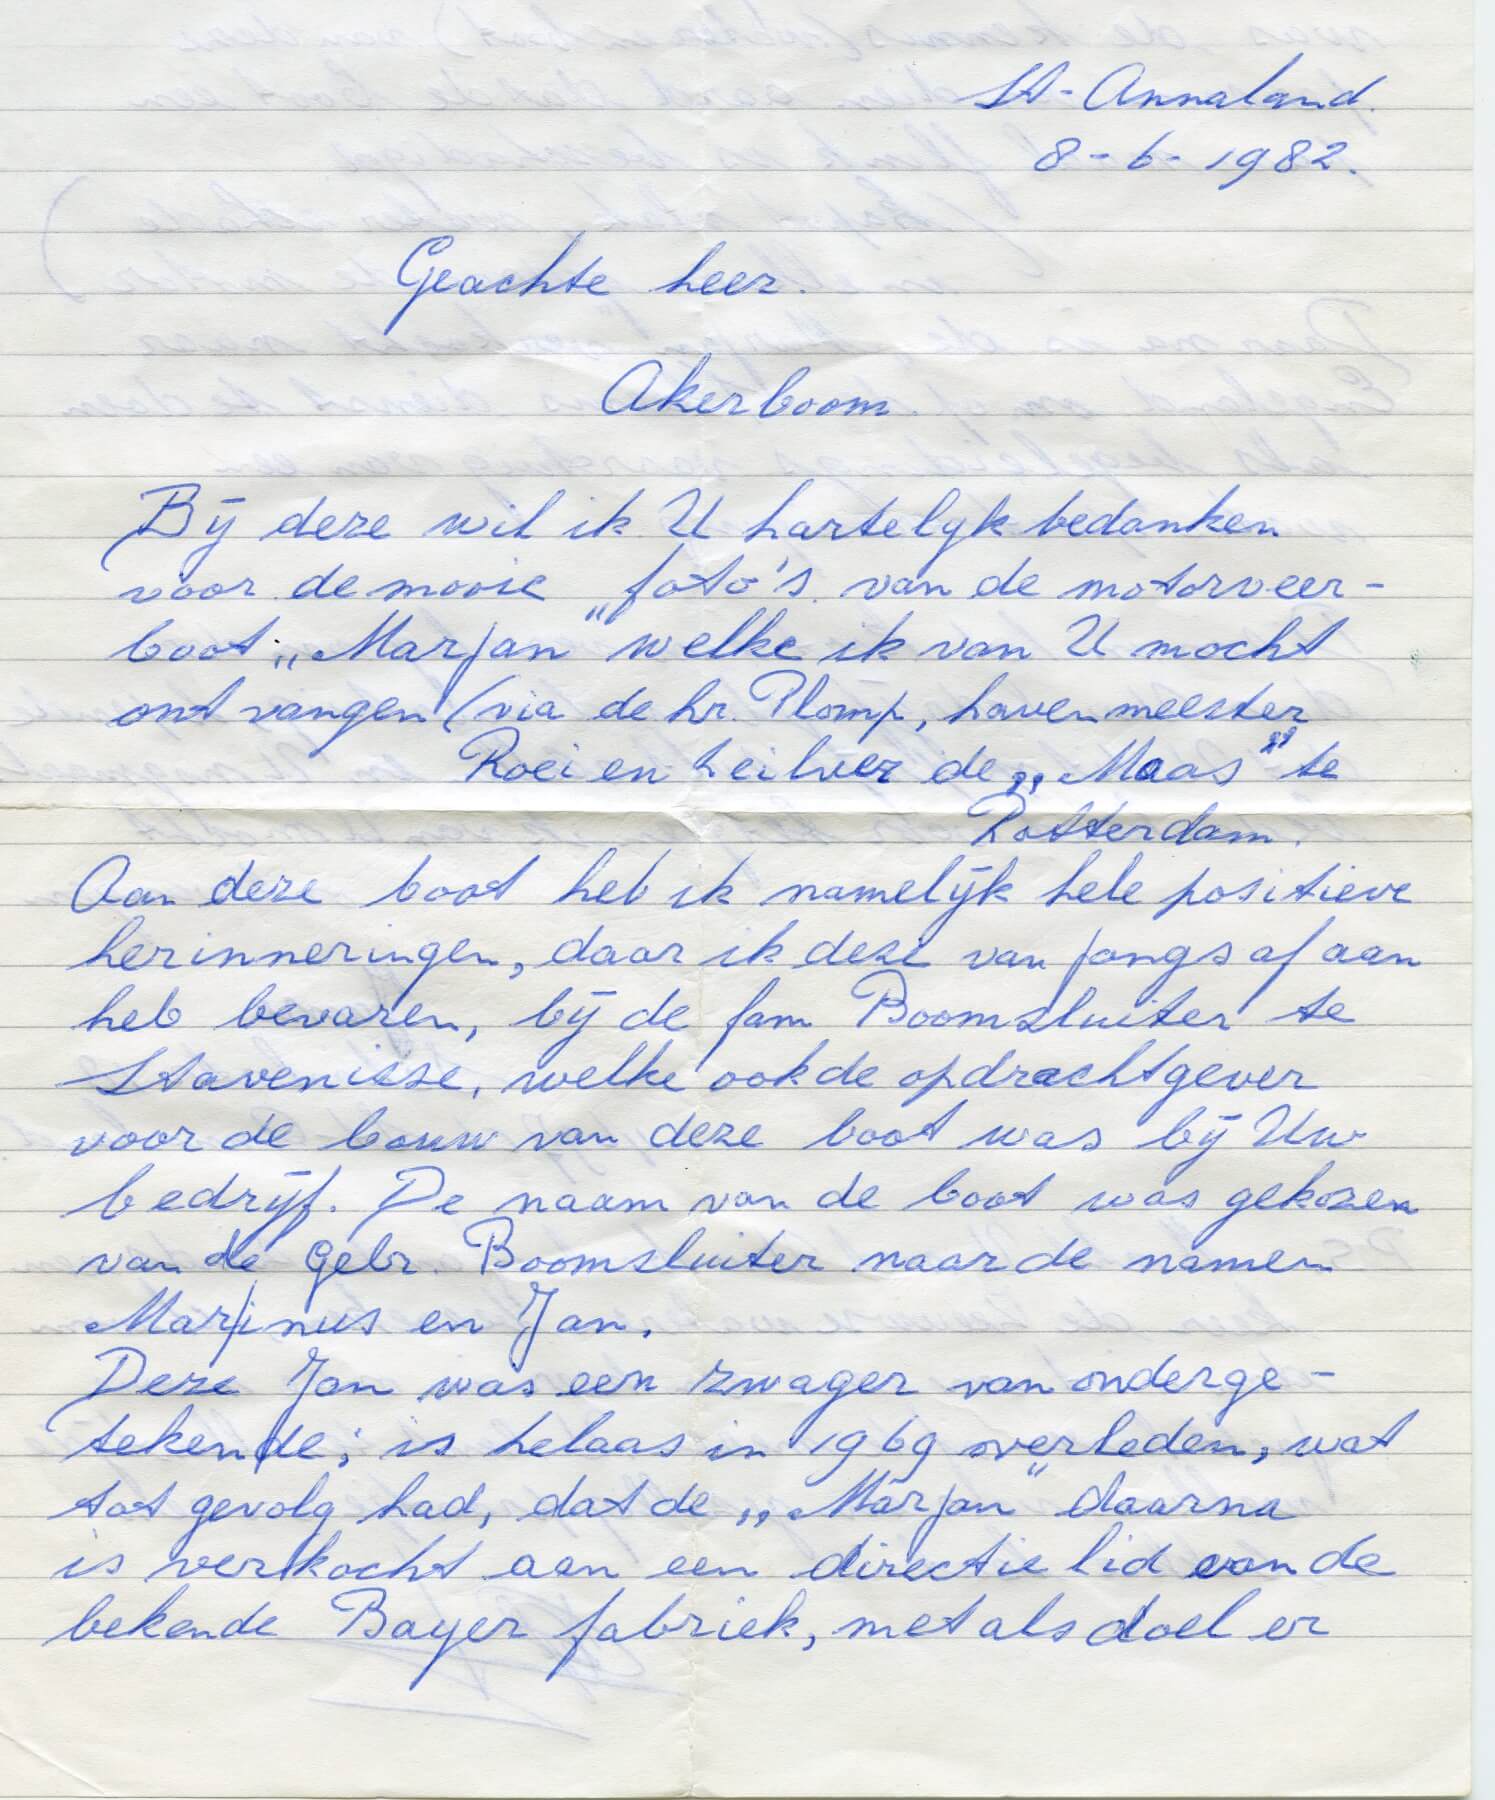 St-Annaland.
8-6-1982.
Geachte heer.
Akerboom.
Bij deze wil ik U hartelijk bedanken
voor de mooie foto's van de motorveer-
boot „Marjan" welke ik van U mocht
ontvangen (via de hr. Plomp, havenmeester
Roei en Zeilver de „Maas" te
Rotterdam.
Aan deze boot heb ik namelijk hele positieve
herinneringen, daar ik deze van jongs af aan
heb bevaren, bij de fam Boomsluiter te
Stavenisse, welke ook de opdrachtgever
voor de bouw van deze boot was bij Uw
bedrijf. De naam van de boot was gekozen
van de Gebr. Boomsluiter naar de namen
Marjinus en Jan.
Deze Jan was een zwager van onderge-
tekende; is helaas in 1969 overleden, wat
tot gevolg had, dat de „Marjan" daarna
is verkocht aan een directie lid van de
bekende Bayer fabriek, met als doel er